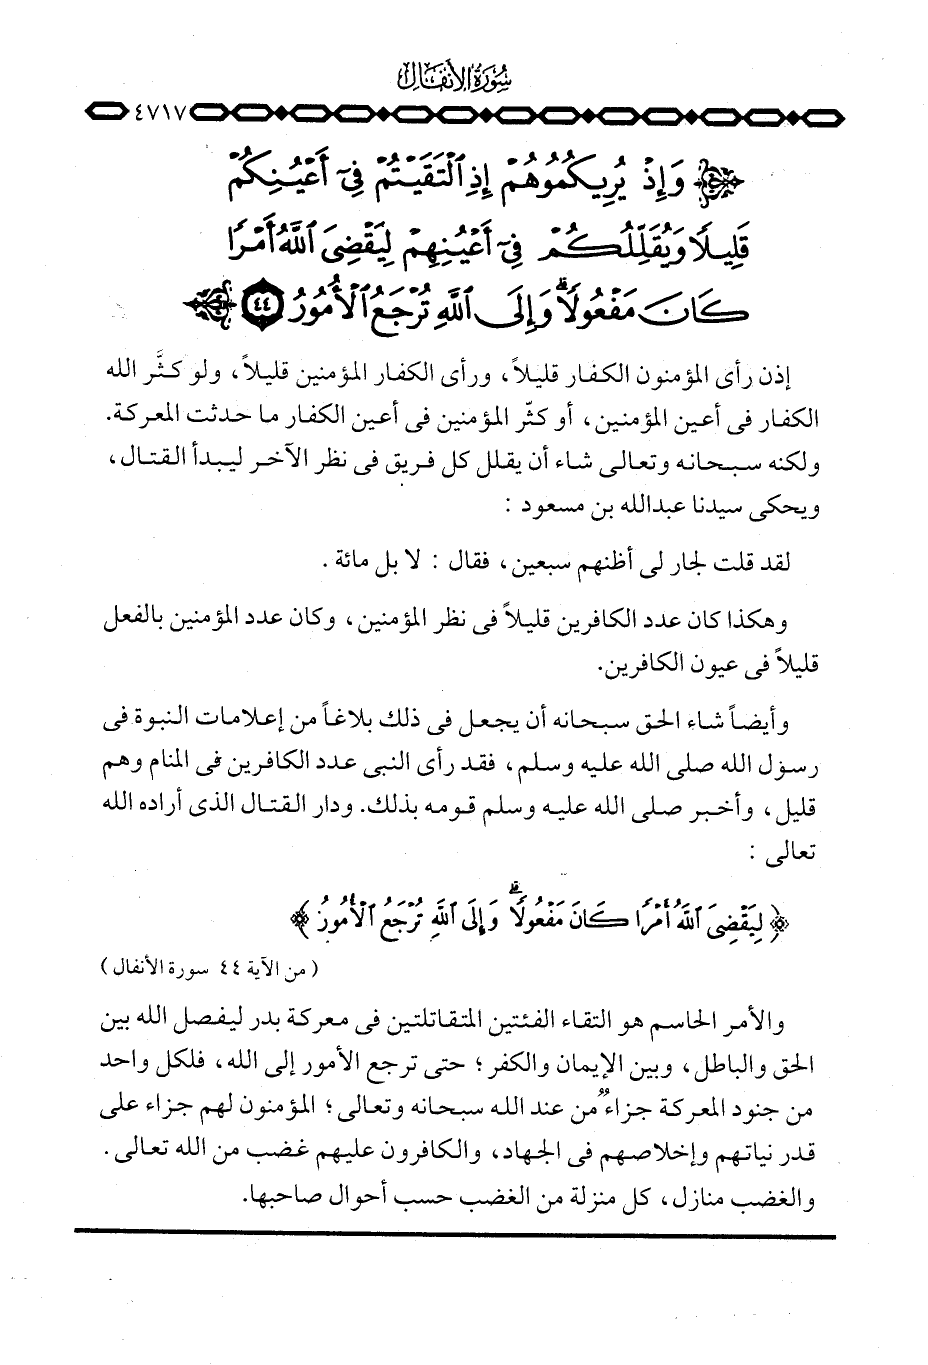 سورة الأنفال
٤٧١٧
وَإِذْ يُرِيكُمُوهُمْ إِذِ ٱلْتَقَيْتُمْ فِىٓ أَعْيُنِكُمْ
قَلِيلًا وَيُقَلِّلُكُمْ فِىٓ أَعْيُنِهِمْ لِيَقْضِىَ ٱللَّهُ أَمْرًا
كَانَ مَفْعُولًا ۗ وَإِلَى ٱللَّهِ تُرْجَعُ ٱلْأُمُورُ ٤٤
إذن رأى المؤمنون الكفار قليلاً، ورأى الكفار المؤمنين قليلاً، ولو كثَّر الله
الكفار فى أعين المؤمنين، أو كثّر المؤمنين فى أعين الكفار ما حدثت المعركة.
ولكنه سبحانه وتعالى شاء أن يقلل كل فريق فى نظر الآخر ليبدأ القتال،
ويحكى سيدنا عبدالله بن مسعود :
لقد قلت لجار لى أظنهم سبعين، فقال : لا بل مائة .
وهكذا كان عدد الكافرين قليلاً فى نظر المؤمنين، وكان عدد المؤمنين بالفعل
قليلاً فى عيون الكافرين.
وأيضاً شاء الحق سبحانه أن يجعل فى ذلك بلاغاً من إعلامات النبوة فى
رسول الله صلى الله عليه وسلم، فقد رأى النبى عدد الكافرين فى المنام وهم
قليل، وأخبر صلى الله عليه وسلم قومه بذلك. ودار القتال الذى أراده الله
تعالى :
﴿ لِيَقْضِىَ ٱللَّهُ أَمْرًا كَانَ مَفْعُولًا ۗ وَإِلَى ٱللَّهِ تُرْجَعُ ٱلْأُمُورُ ﴾
(من الآية ٤٤ سورة الأنفال)
والأمر الحاسم هو التقاء الفئتين المتقاتلتين فى معركة بدر ليفصل الله بين
الحق والباطل، وبين الإيمان والكفر؛ حتى ترجع الأمور إلى الله، فلكل واحد
من جنود المعركة جزاءٌ من عند الله سبحانه وتعالى؛ المؤمنون لهم جزاء على
قدر نياتهم وإخلاصهم فى الجهاد، والكافرون عليهم غضب من الله تعالى.
والغضب منازل، كل منزلة من الغضب حسب أحوال صاحبها.